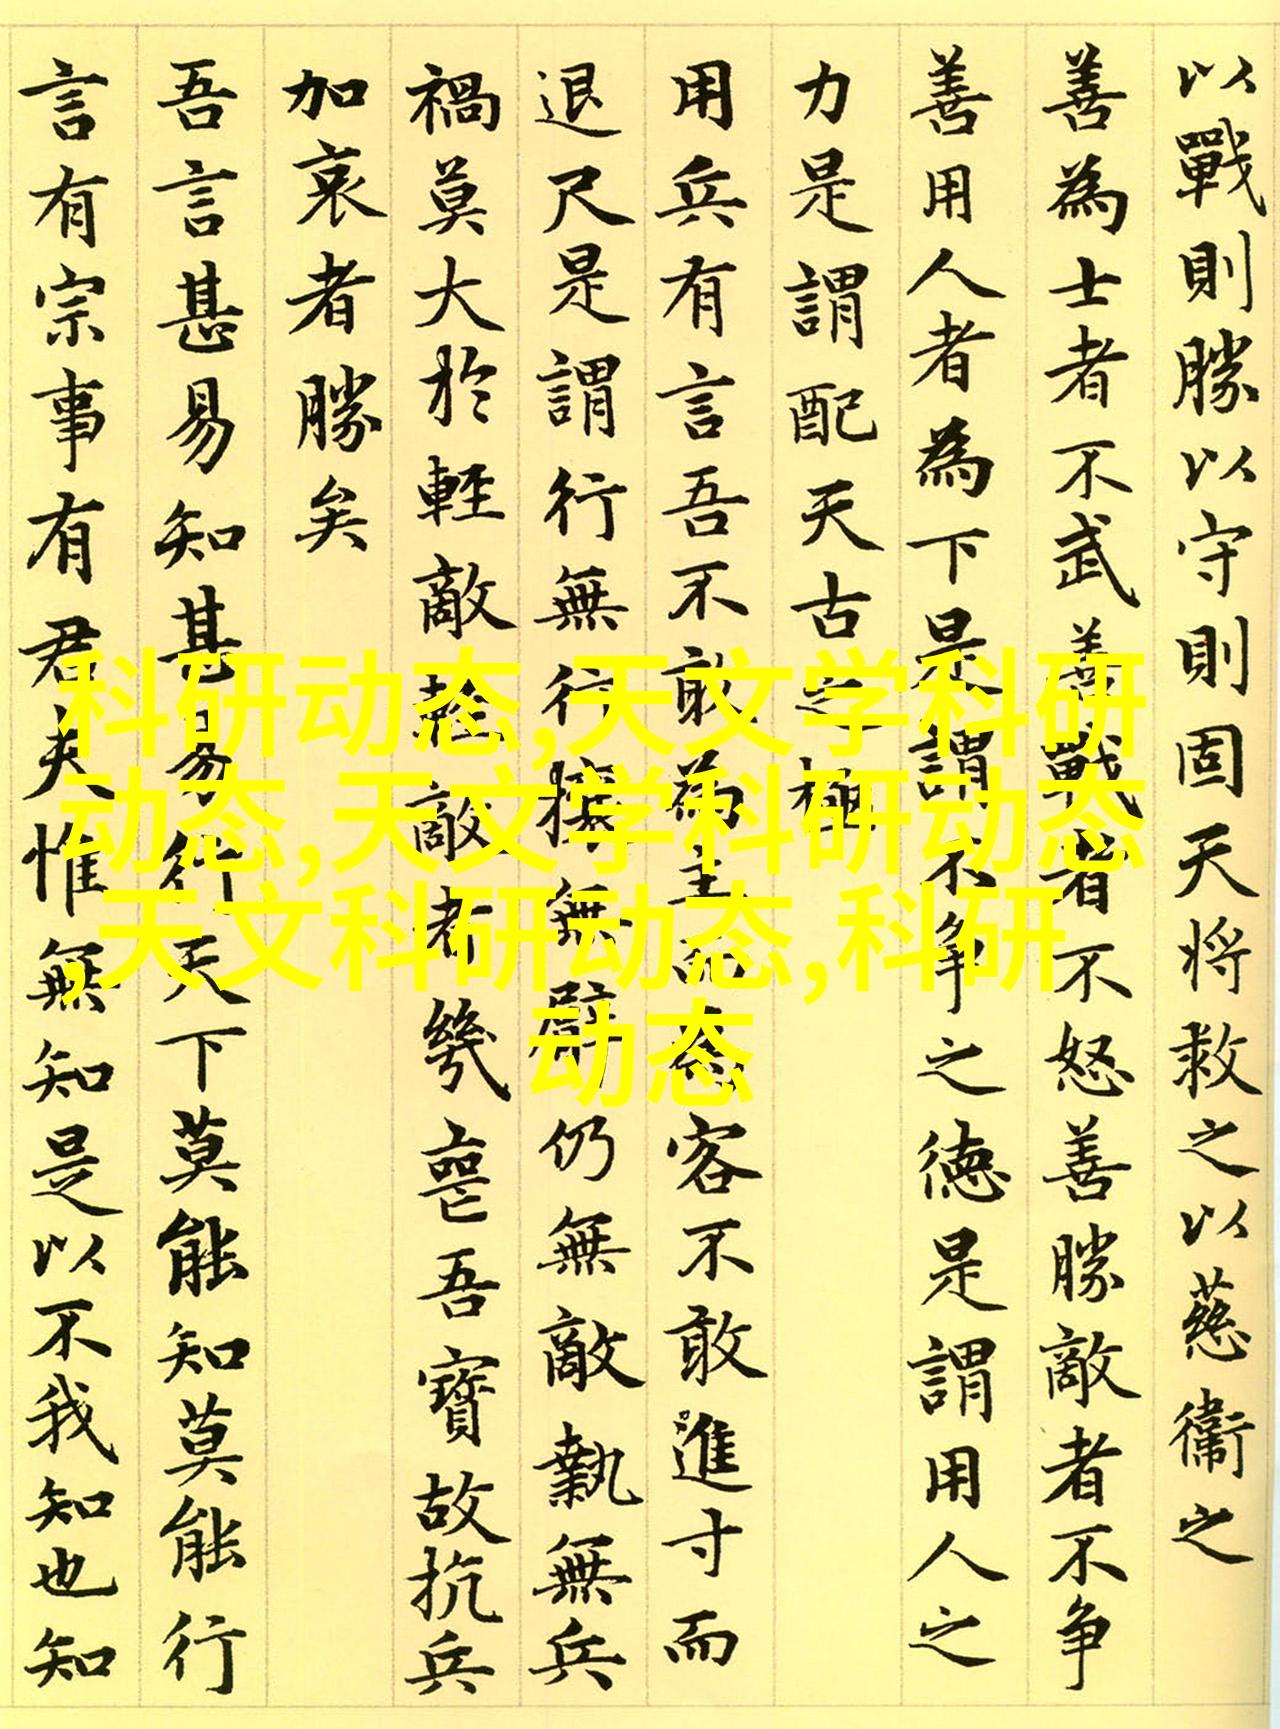 以戰則勝以守則固天將救之以慈衞之
善為士者不武善戰者不怒善勝敵者不争
善用人者為下是謂不争之德是謂用人之
力是謂配天古之極
用兵有言吾不敢為主而為客不敢進寸而
退尺是謂行無行攘無臂仍無敵執無兵
禍莫大於輕敵輕敵者幾喪吾寶故抗兵
加哀者勝矣
吾言甚易知甚易行天下莫能知莫能行
言有宗事有君夫惟無知是以不我知也知
科研动态,天文学科研
动态,天文学科研动态
,天文科研动态,科研
动态